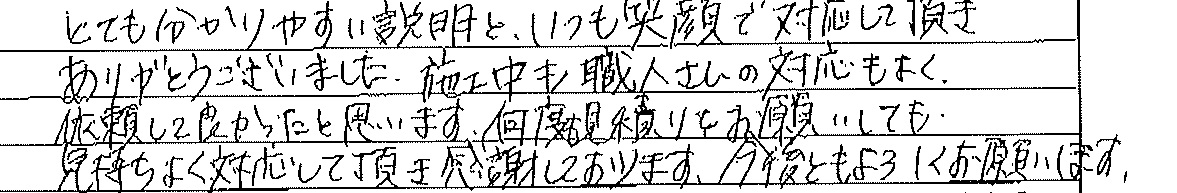 とても分かりやすい説明と、いつも笑顔で対応して頂き
ありがとうございました。施工中も職人さんの対応もよく、
依頼して良かったと思います。何度も見積りをお願いしても、
気持ちよく対応して頂き感謝しております。今後ともよろしくお願いします。